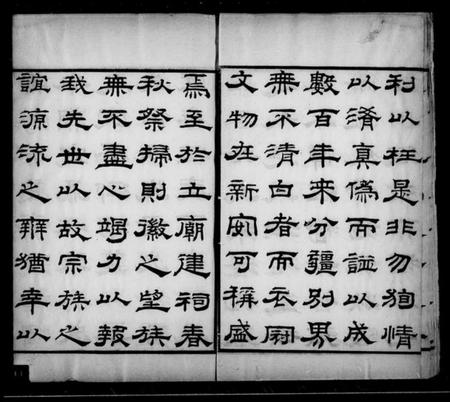 利以枉是非勿狥情
以淆真偽而譜以成
數百年來分疆別界
無不清白者而衣冠
文物在新安可稱盛
焉至於立廟建祠春
秋祭掃則徽之望族
無不盡心竭力以報
我先世以故宗族之
誼源流之辨猶幸以